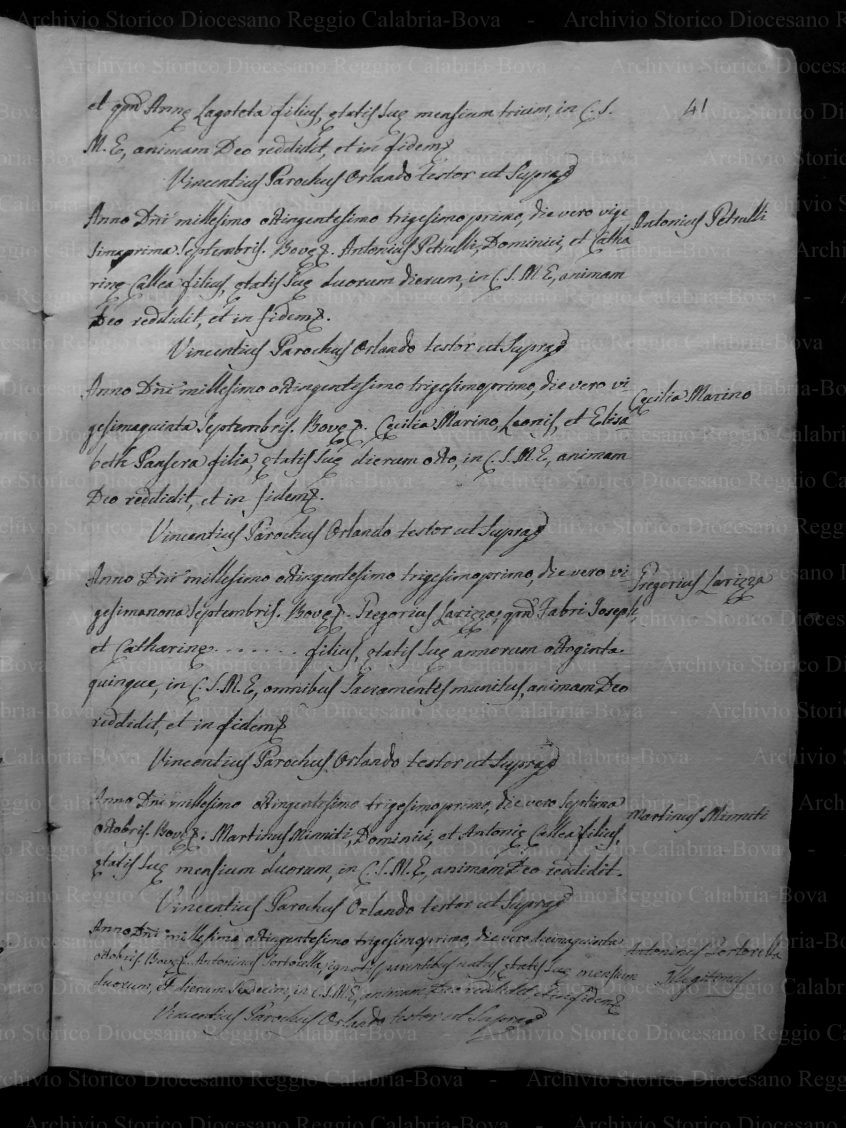 41
et qm̃ Annę Lagoteta filius, ętatis suę mensium trium, in C. S.
M. E, animam Deo reddidit, et in fidem
Vincentius Parochus Orlando testor ut Supra
Anno Dñi millesimo octingentesimo trigesimoprimo, die vero vige
simaprima Septembris. Bovę. Antonius Petrulli, Dominici, et Catha
rinę Callea filius, ętatis suę duorum dierum, in C. S. M. E, animam
Deo reddidit, et in fidem.
Antonius Petrulli
Vincentius Parochus Orlando testor ut Supra
Anno Dñi millesimo octingentesimo trigesimoprimo, die vero vi
gesimaquinta Septembris. Bovę. Cęcilia Marino, Leonis, et Elisa
beth Pansera filia, ętatis suę dierum octo, in C. S. M. E, animam
Deo reddidit, et in fidem.
Cęcilia Marino
Vincentius Parochus Orlando testor ut Supra
Anno Dñi millesimo octingentesimo trigesimoprimo, die vero vi
gesimanona Septembris. Bovę. Gregorius Larizza, qm̃ Fabri Joseph,
et Catharinę . . . . . . . filius, ętatis suę annorum octoginta
quinque, in C. S. M. E, omnibus Sacramentis munitus, animam Deo
reddidit, et in fidem
Gregorius Larizza
Vincentius Parochus Orlando testor ut Supra
Anno Dñi millesimo octingentesimo trigesimoprimo, die vero septima
octobris. Bovę. Martinus Minniti, Dominici, et Antonię Callea filius,
ętatis suę mensium duorum, in C. S. M. E, animam Deo reddidit.
Martinus Minniti
Vincentius Parochus Orlando testor ut Supra
Anno Dñi millesimo octingentesimo trigesimoprimo, die vero decimaquinta
octobris. Bovę. Antoninus Tortorella, ignotis parentibus natus, ętatis suę mensium
duorum, et dierum sedecim, in C. S. M. E, animam Deo reddidit et in fidem
Antoninus Tortorella
Illegitimus
Vincentius Parochus Orlando testor ut Supra
Archivio Storico Diocesano Reggio Calabria-Bova